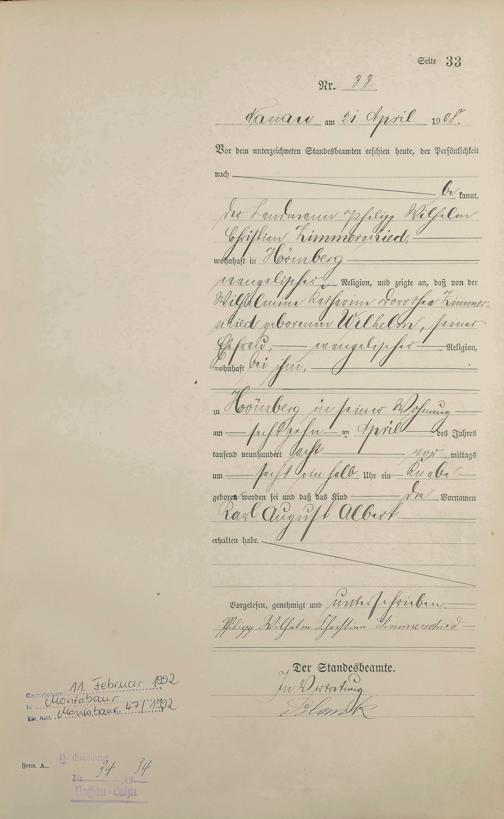 Seite 33
Nr. 33.
Nassau am 21 April 1908.
Vor dem unterzeichneten Standesbeamten erschien heute, der Persönlichkeit
nach
bekannt,
der Landmann Philipp Wilhelm
Christian Zimmerschied,
wohnhaft in Hömberg
evangelischer Religion, und zeigte an, daß von der
Wilhelmine Katharine Dorothea Zimmer-
schied geborenen Wilhelm, seiner
Ehefrau, evangelischer Religion,
wohnhaft bei ihm,
in Hömberg in seiner Wohnung
am sechzehn ten April des Jahres
tausend neunhundert acht vor mittags
um sechs ein halb Uhr ein Knabe
geboren worden sei und daß das Kind die Vornamen
Karl August Albert
erhalten habe.
Vorgelesen, genehmigt und unterschrieben
Philipp Wilhelm Christian Zimmerschied
Der Standesbeamte.
In Vertretung
11. Februar 1992
Montabaur
Montabaur 47/1992
Form. A.
34 34
Nassau-Lahn